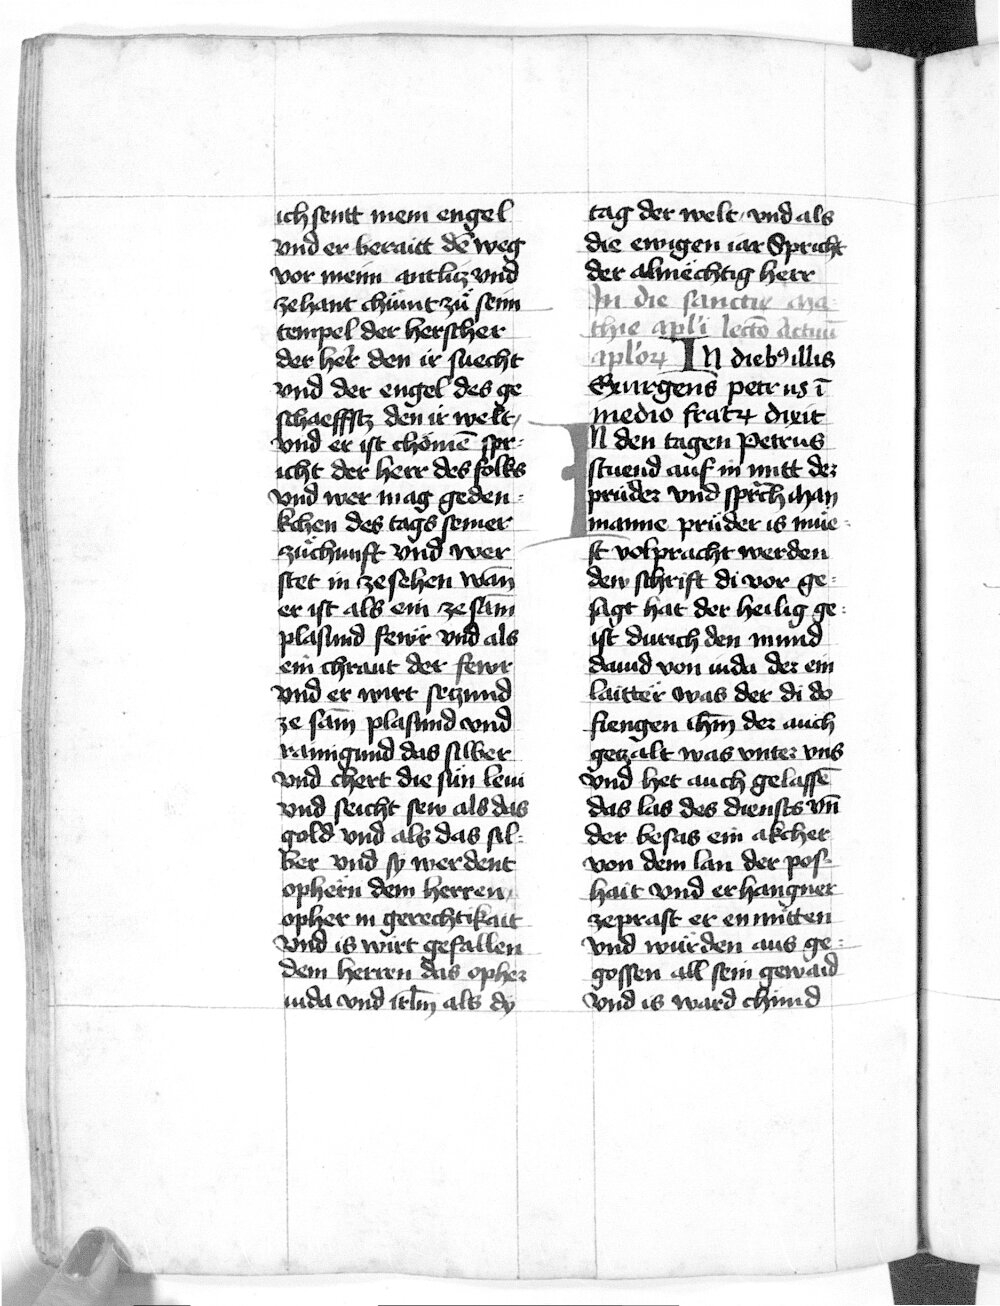 ich sentt mein engel
vnd er beraitt dē weg
vor meim antlicz vnd
ze hant chümt zů seim
tempel der herscher
der her den ir suecht
vnd der engel des ge
schaeffftz den ir welt /
vnd er ist chömē spr=
icht der herr des folks
vnd wer mag geden=
kchen des tags seiner
züchunft vnd wer
stet in ze sehen wān
er ist als ein ze sām
plasund fewr vnd als
ein chraut der fewr
vnd er wirt seczund
ze sām plasund vnd
rainigund das silber
vnd chert die sün leui
vnd seicht sew als das
gold vnd als das sil=
ber vnd sy werdent
ophern dem herren
opher in gerechtikait
vnd is wirt gefallen
dem herren das opher
iuda vnd irlm̄ als dy
tag der welt / vnd als
die ewigen iar Spricht
der almëchtig herr
In die sancti Ma=
thie apl'i lectō Actuū
apl'oꝝ IN dieb9 illis
Exurgens petrus ī
medio fratꝝ dixit
IN den tagen Petrus
stuend auf in mitt der
prüder vnd sprch Man
manne prüder is müe=
st volpracht werden
dew schrift di vor ge=
sagt hat der heilig ge=
ist durich den mund
dauid von iuda der ein
laitter was der di do
fiengen ihm̄ der auch
geczalt was vnter vns
vnd het auch gelassē
das las des diensts vn̄
der besas ein akcher
von dem lan der pos=
hait vnd erhangner
zeprast er enmitten
vnd würden aus ge=
gossen all sein gewaid
vnd is ward chund